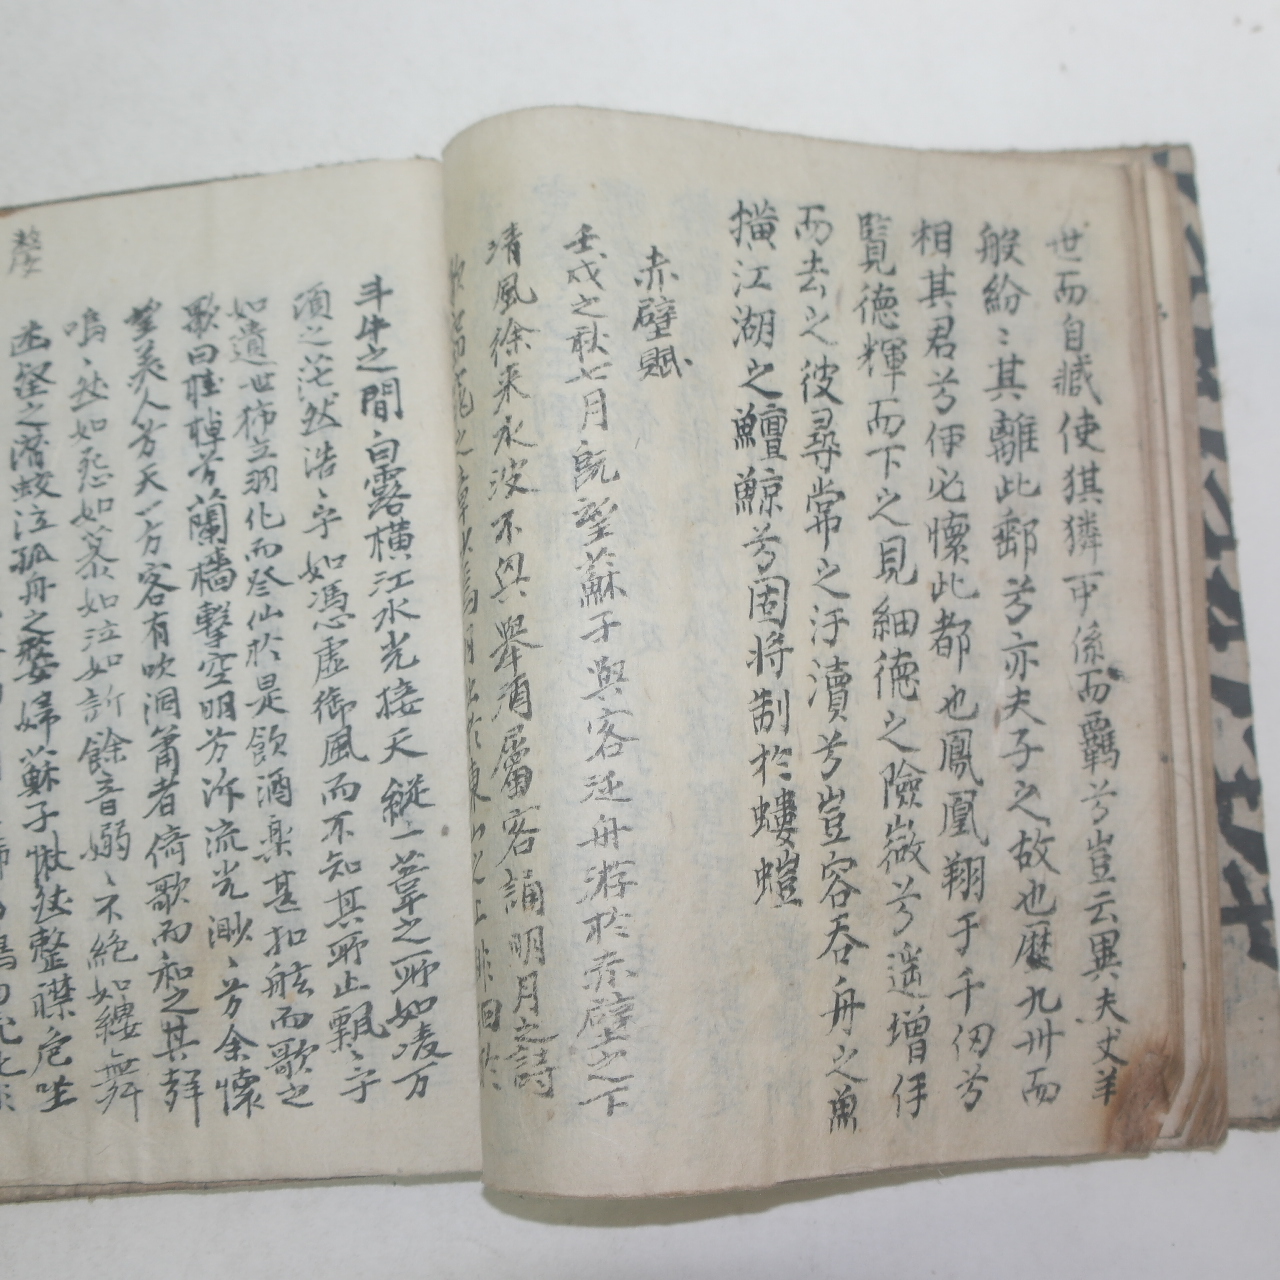 世而自藏使猉獜可係而羈兮豈云異夫犬羊
般紛〻其離此郵兮亦夫子之故也歷九州而
相其君兮何必懷此都也鳳凰翔于千仞兮
覽德輝而下之見細德之險微兮遥增
而去之彼尋常之汙瀆兮豈容吞舟之魚
橫江湖之鱣鯨兮固將制於螻螘
赤壁賦
壬戌之秋七月旣望蘇子與客泛舟游於赤壁之下
清風徐来水波不興擧酒屬客誦明月之詩
歌窈窕之章少焉月出於東山之上徘徊於
斗牛之間白露橫江水光接天縱一葦之所如凌万
頃之茫然浩〻乎如憑虛御風而不知其所止飄〻乎
如遺世獨立羽化而登仙於是飮酒樂甚扣舷而歌之
歌曰桂棹兮蘭檣擊空明兮泝流光渺〻兮余懷
望美人兮天一方客有吹洞簫者倚歌而和之其聲
嗚〻然如怨如慕如泣如訴餘音嫋〻不絶如縷舞
幽壑之潛蛟泣孤舟之嫠婦蘇子愀然整襟危坐
嫠